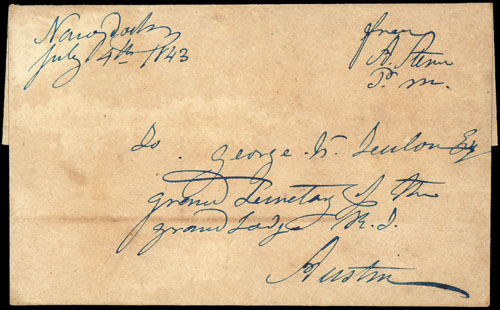 Nacogdoches
July 4th 1843
free
A. Sterne
P. M.
To George K. Teulon Esq
grand Secretary of the
grand Lodge R. T.
Austin